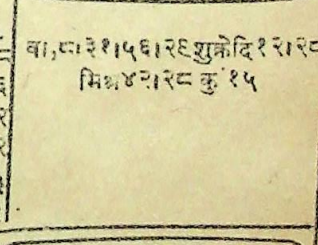 वा,८।३१।५६।२९शुक्रेदि१२।२८
मिश्र४२।२८ कुं १५